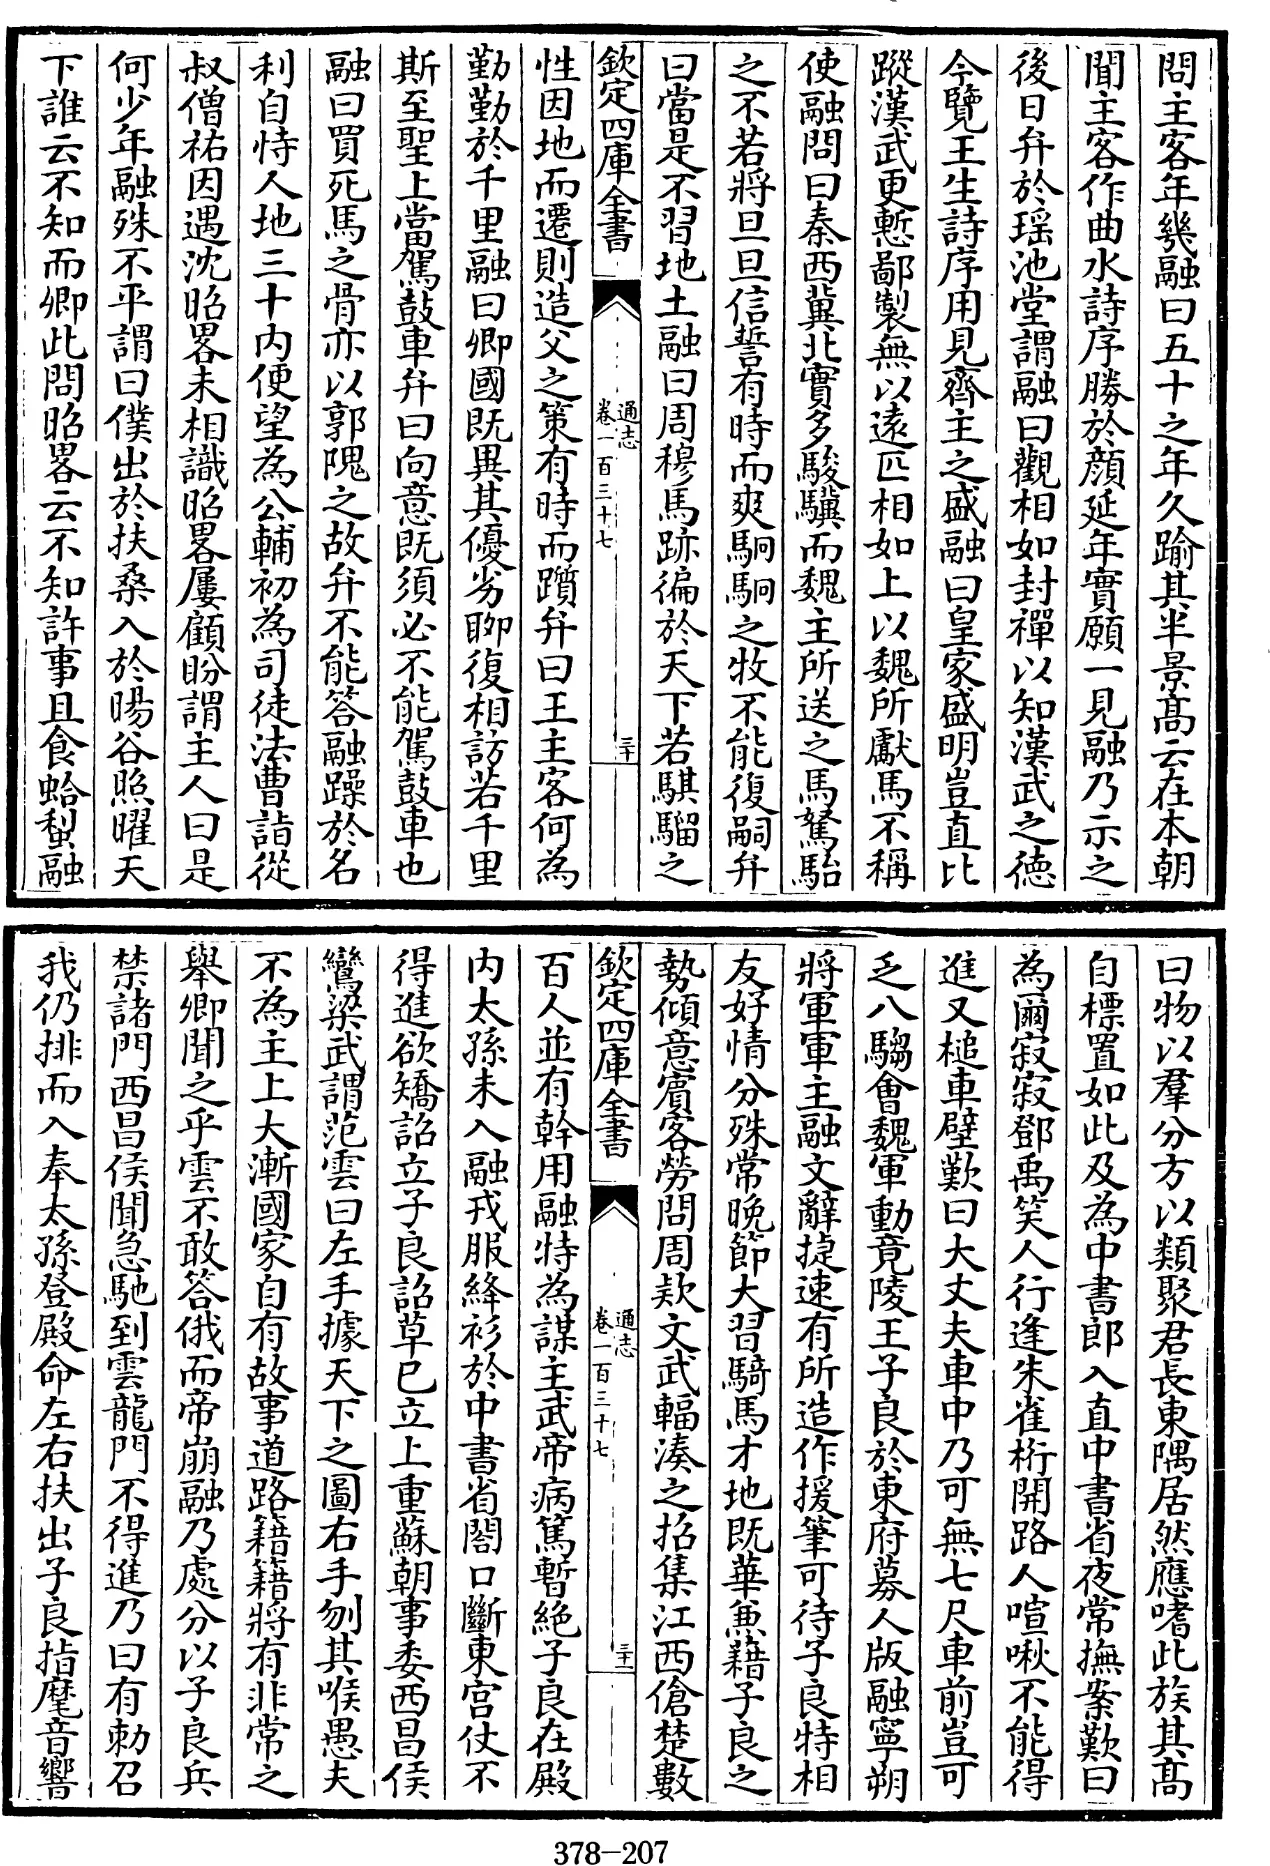 問主客年幾融曰五十之年久踰其半景髙云在本朝
聞主客作曲水詩序勝於顔延年實願一見融乃示之
後日弁於瑶池堂謂融曰觀相如封禪以知漢武之德
今覽王生詩序用見齊主之盛融曰皇家盛明豈直比
蹤漢武更慙鄙製無以逺匹相如上以魏所獻馬不稱
使融問曰秦西冀北實多駿驥而魏主所送之馬駑駘
之不若將旦旦信誓有時而爽駉駉之牧不能復嗣弁
曰當是不習地土融曰周穆馬跡徧於天下若騏騮之
欽定四庫全書
通志
卷一百三十七
三十
性因地而遷則造父之策有時而躓弁曰王主客何為
勤勤於千里融曰卿國既異其優劣聊復相訪若千里
斯至聖上當駕鼓車弁曰向意既須必不能駕鼓車也
融曰買死馬之骨亦以郭隗之故弁不能答融躁於名
利自恃人地三十內便望為公輔初為司徒法曹詣從
叔僧祐因遇沈昭畧未相識昭畧屢顧盼謂主人曰是
何少年融殊不平謂曰僕出於扶桑入於暘谷照曜天
下誰云不知而卿此問昭畧云不知許事且食蛤蜊融
曰物以羣分方以類聚君長東隅居然應嗜此族其髙
自標置如此及為中書郎入直中書省夜常撫案歎曰
為爾寂寂鄧禹笑人行逢朱雀桁開路人喧啾不能得
進又槌車壁歎曰大丈夫車中乃可無七尺車前豈可
乏八騶會魏軍動竟陵王子良於東府募人版融寧朔
將軍軍主融文辭捷速有所造作援筆可待子良特相
友好情分殊常晚節大習騎馬才地既華兼藉子良之
勢傾意賓客勞問周欵文武輻湊之招集江西傖楚數
欽定四庫全書
通志
卷一百三十七
三十一
百人並有幹用融特為謀主武帝病篤暫絶子良在殿
内太孫未入融戎服絳衫於中書省閤口斷東宮仗不
得進欲矯詔立子良詔草已立上重蘇朝事委西昌侯
鸞梁武謂范雲曰左手據天下之圖右手刎其喉愚夫
不為主上大漸國家自有故事道路籍籍將有非常之
舉卿聞之乎雲不敢答俄而帝崩融乃處分以子良兵
禁諸門西昌侯聞急馳到雲龍門不得進乃曰有勅召
我仍排而入奉太孫登殿命左右扶出子良指麾音響
378-207